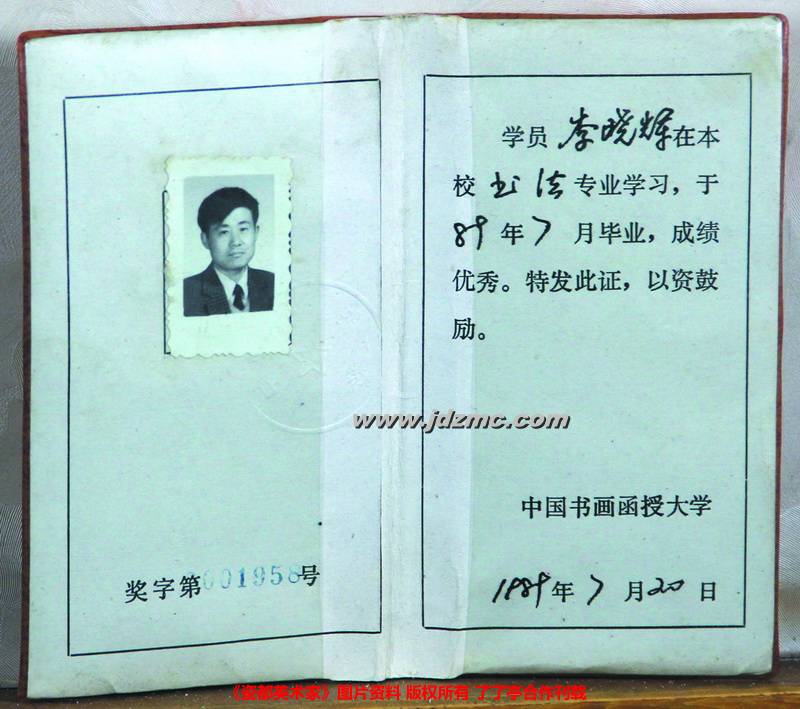 奖字第0001958号
学员李晓辉在本
校书法专业学习，于
89年7月毕业，成绩
优秀。特发此证，以资鼓
励。
www.jdzmc.com
中国书画函授大学
1989年7月20日
《瓷都美术家》图片资料 版权所有 了了亭合作刊载